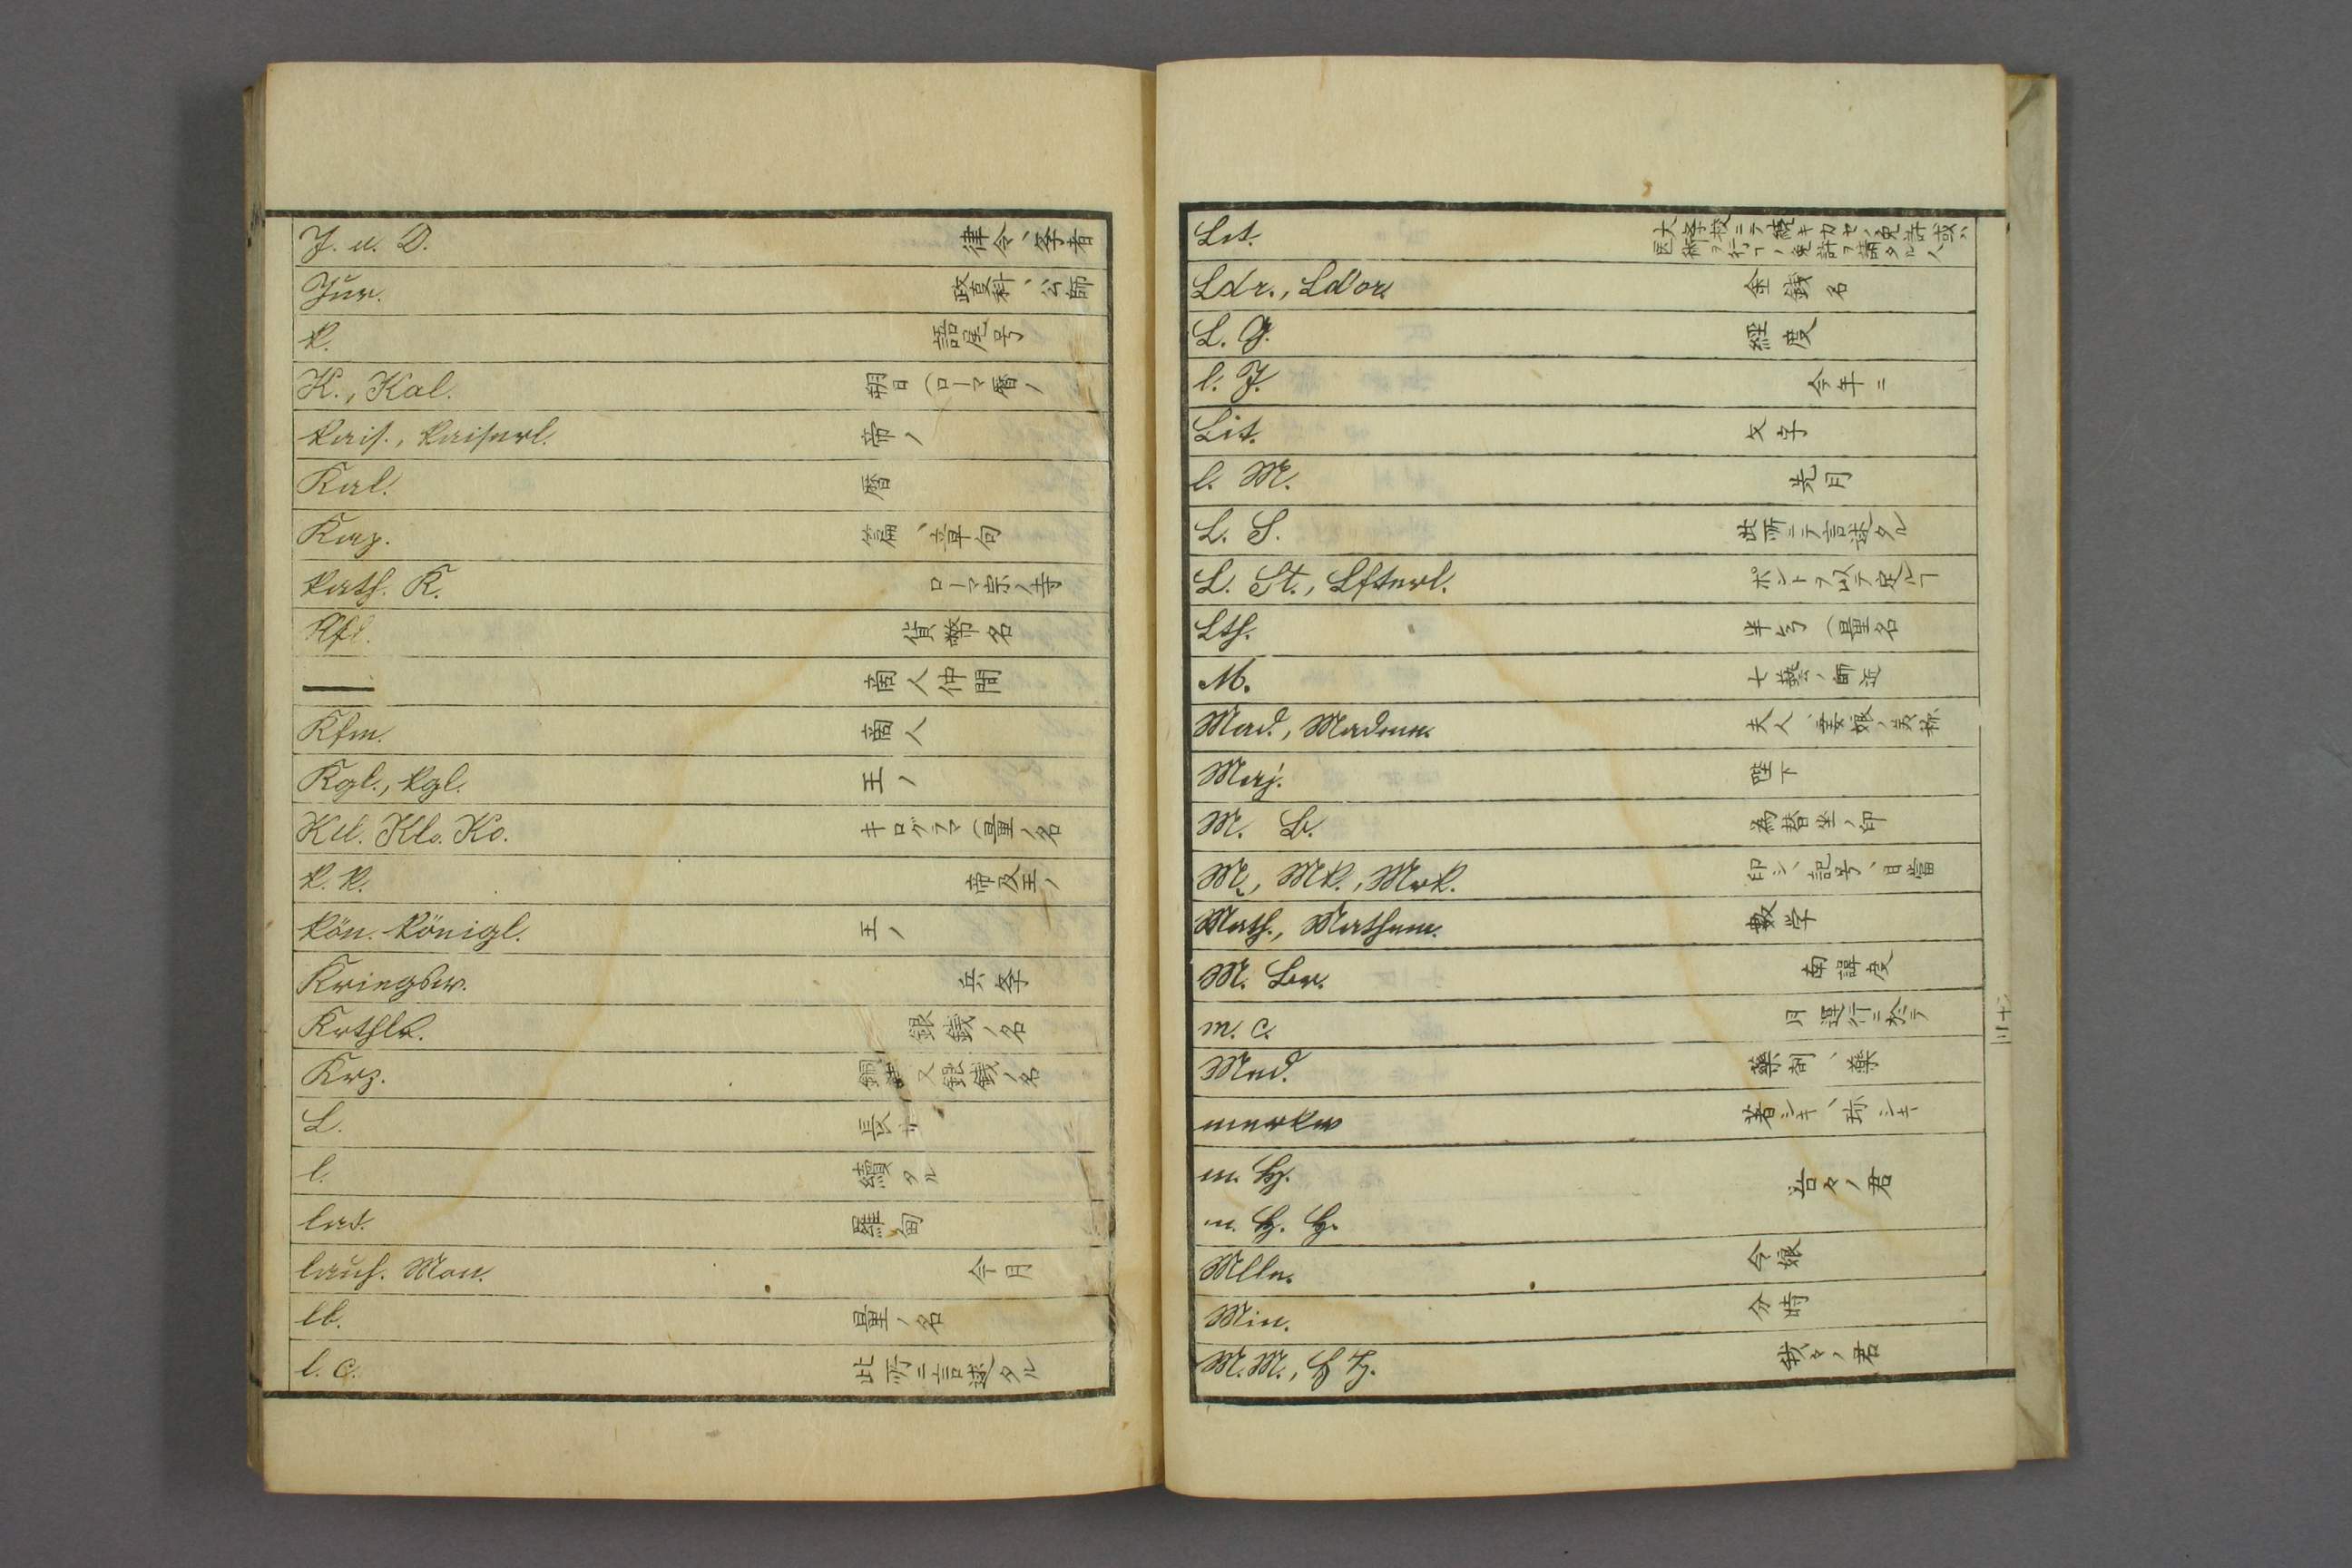 J. u. D. 律令ノ学者
Jur. 政夏科ノ公師
k. 語尾号
K., Kal. 朔日(ローマ暦ノ
kais., kaiserl. 帝ノ
Kal. 暦
Kap. 篇、章句
kath. K. ローマ宗ノ寺
Kfl. 貨幣名
— 商人仲間
Kfm. 商人
Kgl., kgl. 王ノ
Kil. Klo. Ko. キログラマ(量ノ名
k. k. 帝及王ノ
kön. königl. 王ノ
Kriegsw. 兵学
Krthlr. 銀銭ノ名
Krz. 銅又銀銭ノ名
L. 長サ
l. 續タル
lat. 羅甸
lauf. Mon. 今月
lb. 量ノ名
l. c. 此所ニ言述タル
Lct.
大学校ニテ聴キカセノ免許或ハ
医術ヲ行フノ免許ヲ請タル人
Ldr., Ldor. 金銭名
L. G. 經度
l. J. 今年ニ
Lit. 文字
l. M. 先月
L. S. 此所ニテ言述タル
L. St., Lsterl. ポントヲ以テ定ルヿ
Lth. 半兮(量名
M. 七藝ノ師匠
Mad., Madem. 夫人、妻娘ノ美称
Maj. 陛下
M. B. 為替坐ノ印
M., Mk., Mrk. 印シ、記号、目當
Math., Mathem. 數学
M. Br. 南緯度
m. c. 月運行ニ於テ
Med. 藥剤、藥
merkw 著シキ、珎シキ
m. H. 吾々ノ君
m. H. H.
Mlle. 令娘
Min. 分時
M. M., H H. 我々ノ君
三十